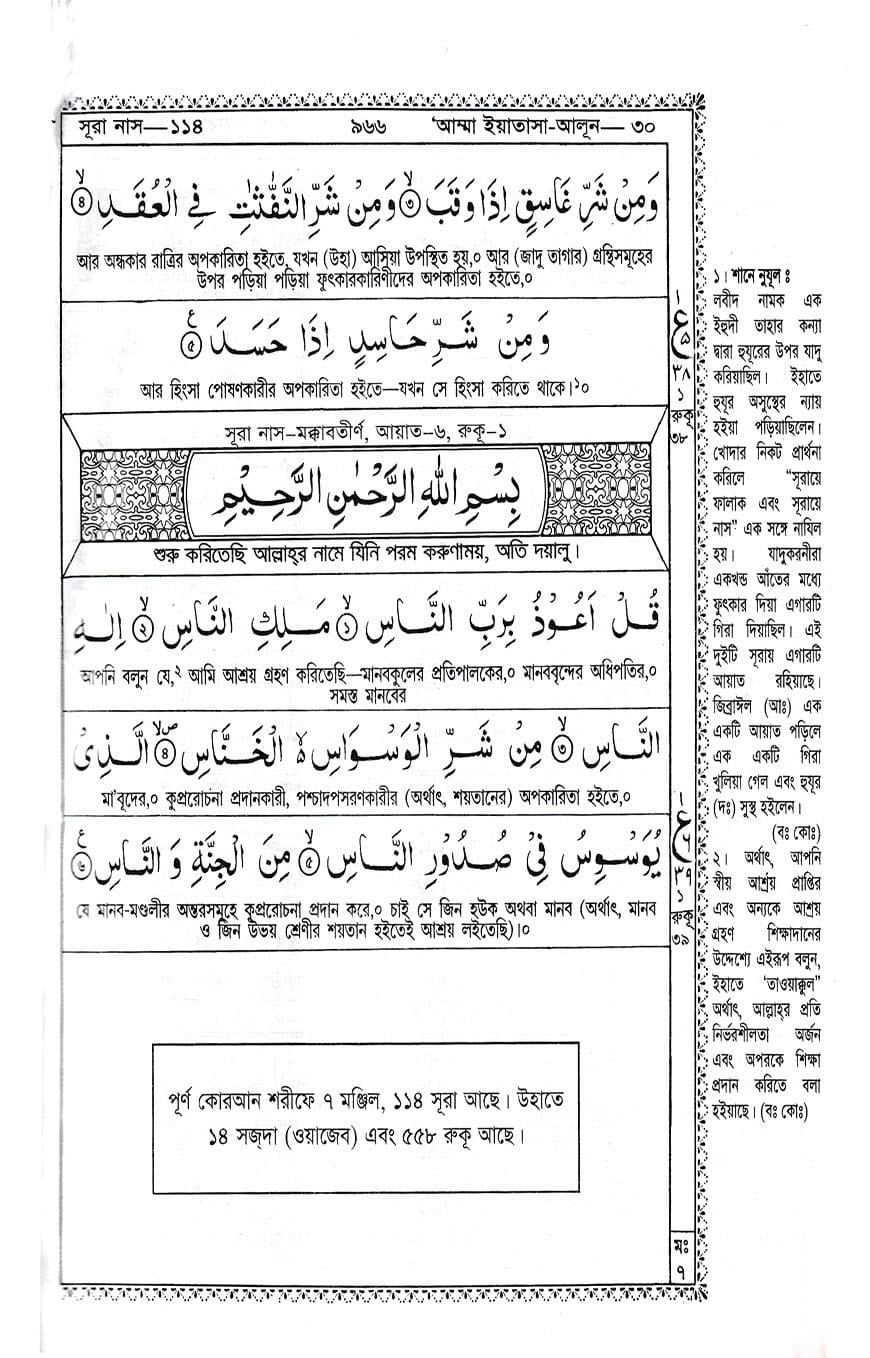 সূরা নাস—১১৪ ৯৬৬ ‘আম্মা ইয়াতাসা-আলূন— ৩০
وَمِنْ شَرِّ غَاسِقٍ اِذَا وَقَبَ ﴿৩﴾ وَمِنْ شَرِّ النَّفّٰثٰتِ فِى الْعُقَدِ ﴿৪﴾ۙ
আর অন্ধকার রাত্রির অপকারিতা হইতে, যখন (উহা) আসিয়া উপস্থিত হয়,০ আর (জাদু তাগার) গ্রন্থিসমূহের
উপর পড়িয়া পড়িয়া ফূৎকারকারিণীদের অপকারিতা হইতে,০
وَمِنْ شَرِّ حَاسِدٍ اِذَا حَسَدَ ﴿৫﴾ع
আর হিংসা পোষণকারীর অপকারিতা হইতে—যখন সে হিংসা করিতে থাকে।১০
সূরা নাস–মক্কাবতীর্ণ, আয়াত–৬, রুকূ–১
بِسْمِ اللهِ الرَّحْمٰنِ الرَّحِيْمِ
শুরু করিতেছি আল্লাহ্‌র নামে যিনি পরম করুণাময়, অতি দয়ালু।
قُلْ اَعُوْذُ بِرَبِّ النَّاسِ ﴿১﴾ۙ مَلِكِ النَّاسِ ﴿২﴾ۙ اِلٰهِ
আপনি বলুন যে,২ আমি আশ্রয় গ্রহণ করিতেছি—মানবকুলের প্রতিপালকের,০ মানববৃন্দের অধিপতির,০
সমস্ত মানবের
النَّاسِ ﴿৩﴾ۙ مِنْ شَرِّ الْوَسْوَاسِ ۙ الْخَنَّاسِ ﴿৪﴾ۙ الَّذِىْ
মা'বূদের,০ কুপ্ররোচনা প্রদানকারী, পশ্চাদপসরণকারীর (অর্থাৎ, শয়তানের) অপকারিতা হইতে,০
يُوَسْوِسُ فِىْ صُدُوْرِ النَّاسِ ﴿৫﴾ۙ مِنَ الْجِنَّةِ وَ النَّاسِ ﴿৬﴾ع
যে মানব-মণ্ডলীর অন্তরসমূহে কুপ্ররোচনা প্রদান করে,০ চাই সে জিন হউক অথবা মানব (অর্থাৎ, মানব
ও জিন উভয় শ্রেণীর শয়তান হইতেই আশ্রয় লইতেছি)।০
পূর্ণ কোরআন শরীফে ৭ মঞ্জিল, ১১৪ সূরা আছে। উহাতে
১৪ সজ্‌দা (ওয়াজেব) এবং ৫৫৮ রুকূ আছে।
১
ع
৫
৩৮
১
রুকূ
৩৮
১
ع
৬
৩৯
১
রুকূ
৩৯
মঃ
৭
১। শানে নুযূল ঃ
লবীদ নামক এক
ইহুদী তাহার কন্যা
দ্বারা হুযূরের উপর যাদু
করিয়াছিল। ইহাতে
হুযূর অসুস্থের ন্যায়
হইয়া পড়িয়াছিলেন।
খোদার নিকট প্রার্থনা
করিলে “সূরায়ে
ফালাক এবং সূরায়ে
নাস” এক সঙ্গে নাযিল
হয়। যাদুকরনীরা
একখন্ড আঁতের মধ্যে
ফূৎকার দিয়া এগারটি
গিরা দিয়াছিল। এই
দুইটি সূরায় এগারটি
আয়াত রহিয়াছে।
জিব্রাঈল (আঃ) এক
একটি আয়াত পড়িলে
এক একটি গিরা
খুলিয়া গেল এবং হুযূর
(দঃ) সুস্থ হইলেন।
(বঃ কোঃ)
২। অর্থাৎ, আপনি
স্বীয় আশ্রয় প্রাপ্তির
এবং অন্যকে আশ্রয়
গ্রহণ শিক্ষাদানের
উদ্দেশ্যে এইরূপ বলুন,
ইহাতে ‘তাওয়াক্কুল”
অর্থাৎ, আল্লাহ্‌র প্রতি
নির্ভরশীলতা অর্জন
এবং অপরকে শিক্ষা
প্রদান করিতে বলা
হইয়াছে। (বঃ কোঃ)